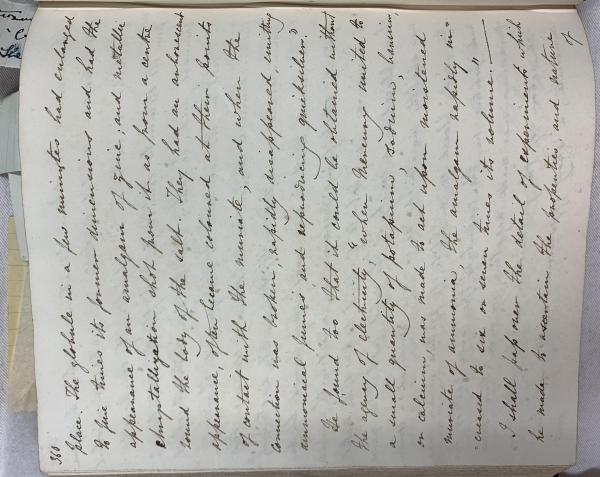 360
place. The globule in a few minutes had enlarged
to five times its former dimensions and had the
appearance of an amalgam of zinc; and metallic
crystallization shot from it as from a centre
round the body of the salt. They had an arborescent
appearance, often became coloured at their points
of contact with the muriate; and when the
connection was broken, rapidly disappeared, emitting
ammoniacal fumes and reproducing quicksilver."
He found too that it could be obtained without
the agency of electricity; "when mercury united to
a small quantity of potassium, sodium, barium,
or calcium, was made to act upon moistened
muriate of ammonia, the amalgam rapidly in-
-creased to six or seven times its volume."
I shall pass over the detail of experiments which
he made to ascertain the properties and nature
of